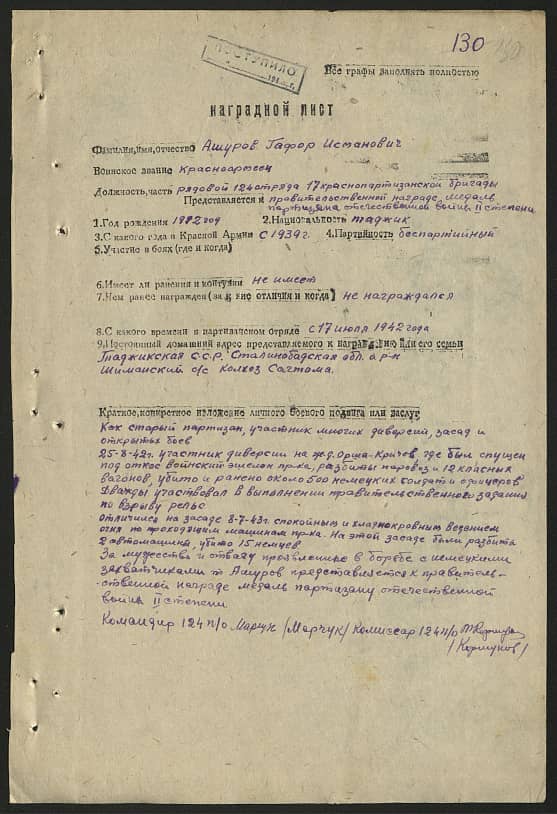 130 130
ПОСТУПИЛО
Все графы заполнять полностью
наградной лист
Фамилия,имя,отчество Ашуров Гафор Исманович
Воинское звание Красноармеец
Должность,часть рядовой 124 отряда 17 краснопартизанской бригады
Представляется к правительственной награде медаль
партизана отечественной войны II степени
1.Год рождения 1912 год 2.Национальность таджик
3.С какого года в Красной Армии с 1939г. 4.Партийность беспартийный
5.Участие в боях (где и когда)
6.Имеет ли ранения и контузии не имеет
7.Чем ранее награжден (за какие отличия и когда) не награждался
8.С какого времени в партизанском отряде с 17 июля 1942 года
9.Постоянный домашний адрес представляемого к награждению и его семьи
Таджикская С.С.Р. Сталинобадская обл. а р-к
Шиманский с/с Колхоз Сахтома.
Краткое,конкретное изложение личного боевого подвига или заслуг
Как старый партизан, участник многих диверсий, засад и
открытых боев
25-8-42г. участник диверсии на ж.д. Орша-Кричев, где был спущен
под откос воинский эшелон пр-ка, разбиты паровоз и 12 класных
вагонов, убито и ранено около 500 немецких солдат и офицеров
Дважды участвовал в выполнении правительственного задания
по взрыву рельс
Отличился на засаде 8-7-43г. спокойным и хладнокровным ведением
огня по проходящим машинам пр-ка. На этой засаде были разбиты
2 автомашины, убито 15 немцев
За мужество и отвагу проявленые в борьбе с немецкими
захватчиками т Ашуров представляется к правитель-
-ственной награде медаль партизану отечественной
войны II степени
Командир 124 п/о Марчук /Марчук/ Комиссар 124 п/о
/Коршуков/